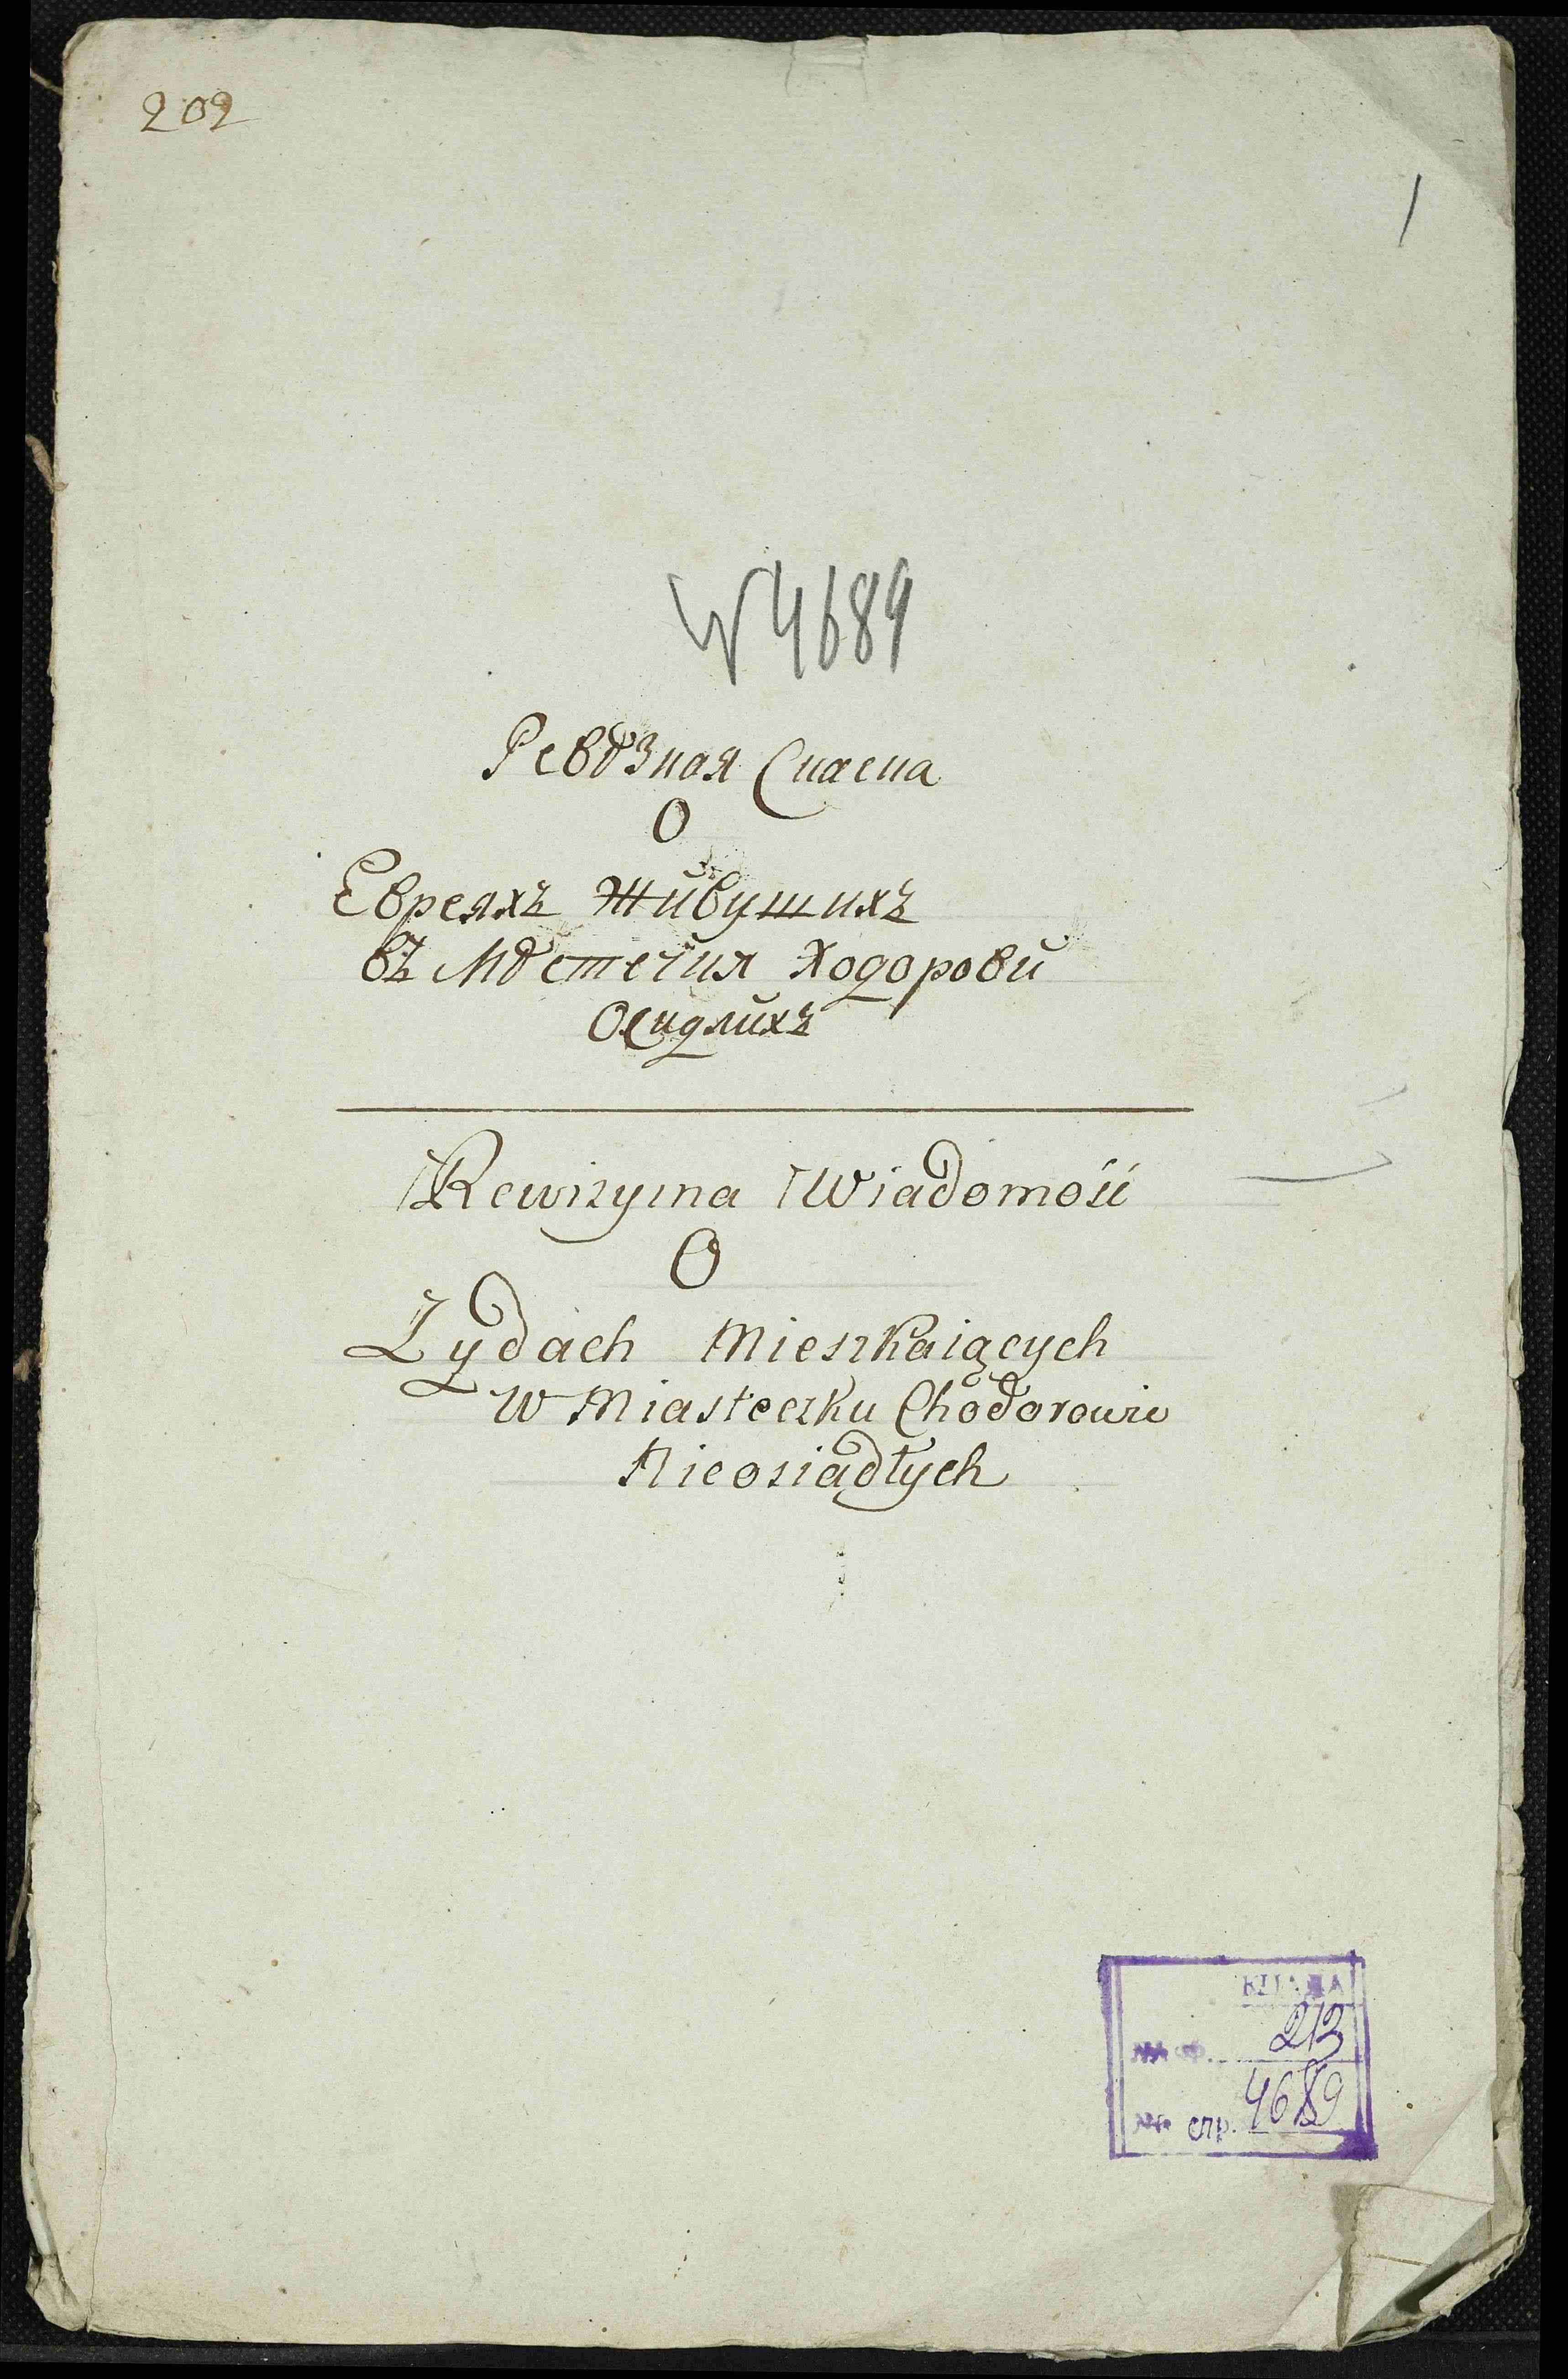 202
1
№ 4689
Ревѣзная Спаспа
О
Евреяхъ Живушихъ
въ Мѣстечия Ходорови
Осидлихъ
Rewizyina Wiadomość
O
Żydach Mieszkaiących
w Miasteczku Chodorowie
Nieosiadłych
ЦДІАЛ
№ ф. 213
№ спр. 4689